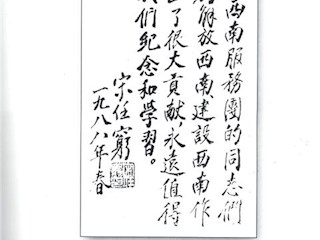 西南服務團的同志們
解放西南建設西南作
了很大貢献,永遠值得
我們紀念和學習。
宋任窮
一九八八年春